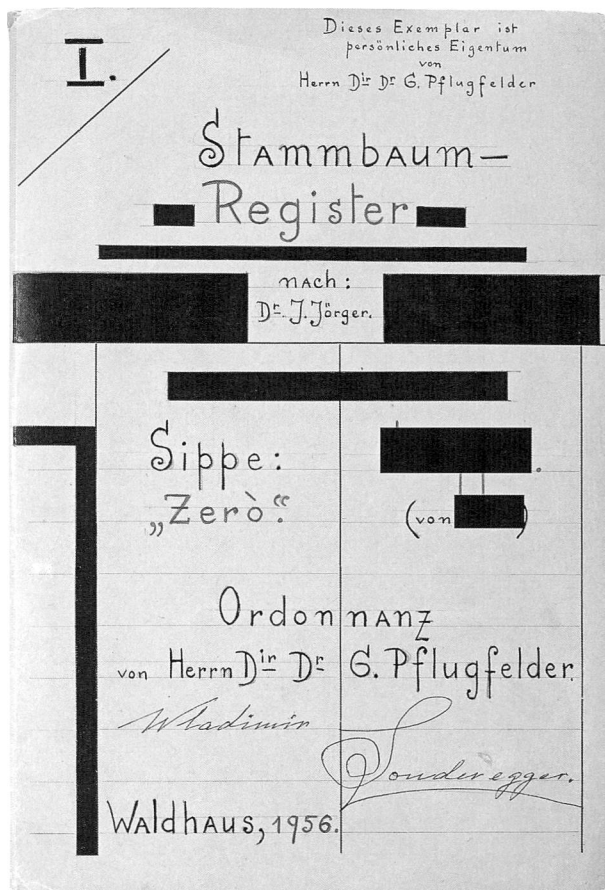 I.
Dieses Exemplar ist
persönliches Eigentum
von
Herrn Dir Dr G. Pflugfelder
Stammbaum-
Register
nach:
Dr. J. Jörger.
Sippe:
„Zerò“.
(von )
Ordonnanz
von Herrn Dir Dr G. Pflugfelder.
Wladimir
Sonderegger.
Waldhaus, 1956.